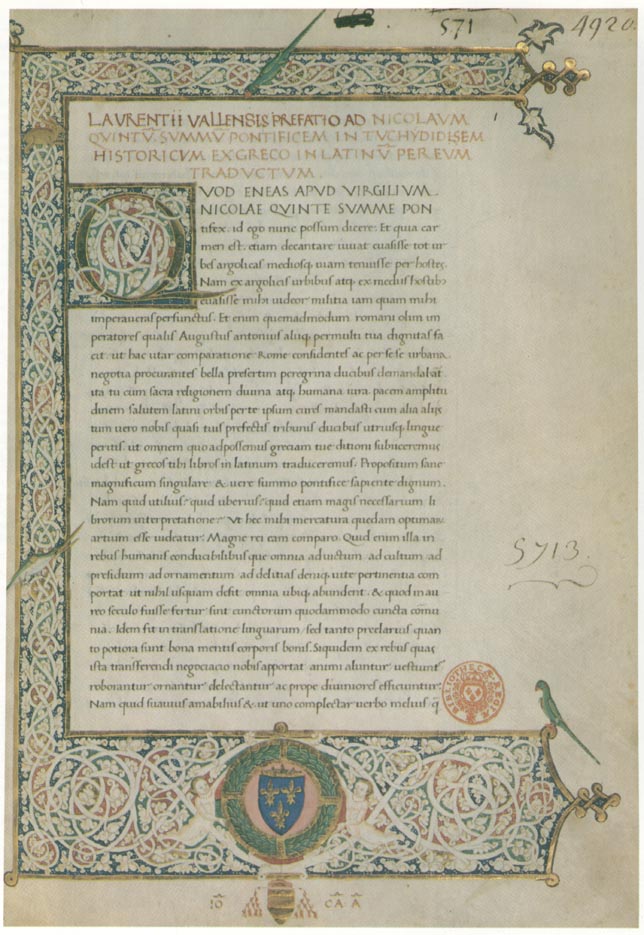 571
4920.
LAVRENTII VALLENSIS PREFATIO AD NICOLAVM
QVINTV̄. SVMMV̄ PONTIFICEM IN TVCHYDIDISEM
HISTORICVM EX GRECO IN LATINV̄ PER EVM
TRADVCTVM.
QVOD ENEAS APVD VIRGILIVM.
NICOLAE QVINTE SVMME PON
tifex. id ego nunc possum dicere: Et quia car
men est. etiam decantare iuuat euasisse tot ur
bes argolicas mediosq; uiam tenuisse per hostes.
Nam ex argolicis urbibus atq; ex mediis hostib;
euasisse mihi uideor militia iam quam mihi
imperaueras perfunctus. Et enim quemadmodum romani olim im
peratores qualis Augustus antonius aliiq; permulti tua dignitas fa
cit. ut hac utar comparatione. Rome considentes ac per se se urbana.
negotia procurantes bella presertim peregrina ducibus demandabāt
ita tu cum sacra religionem diuina atq; humana iura. pacem amplitu
dinem salutem latini orbis per te ipsum cures mandasti cum alia aliis
tum uero nobis quasi tuis prefectis tribunis ducibus utriusq; lingue
peritis. ut omnem quoad possemus greciam tue ditioni subiiceremus
idest ut grecos tibi libros in latinum traduceremus. Propositum sane
magnificum singulare & uere summo pontifice sapiente dignum.
Nam quid utilius? quid uberius? quid etiam magis necessarium li
brorum interpretatione? Vt hec mihi mercatura quedam optimar
artium esse uideatur. Magne rei eam comparo. Quid enim illa in
rebus humanis conducibilibus que omnia aduictum. ad cultum. ad
presidium. ad ornamentum. ad delitias deniq; uite pertinentia com
portat. ut nihil usquam desit. omnia ubiq; abundent. & quod in au
reo seculo fuisse fertur. sint cunctorum quodammodo cuncta cōmu
nia. Idem fit in translatione linguarum. sed tanto preclarius quan
to potiora sunt bona mentis corporis bonis. Siquidem ex rebus quas
ista transferendi negociacio nobis apportat animi aluntur uestiunt
roborantur ornantur. delectantur ac prope diuiniores efficiuntur
Nam quid suauius amabilius & ut uno complectar uerbo melius q̄
5713.
BIBLIOTHECÆ REGIÆ
IŌ CĀ Ā